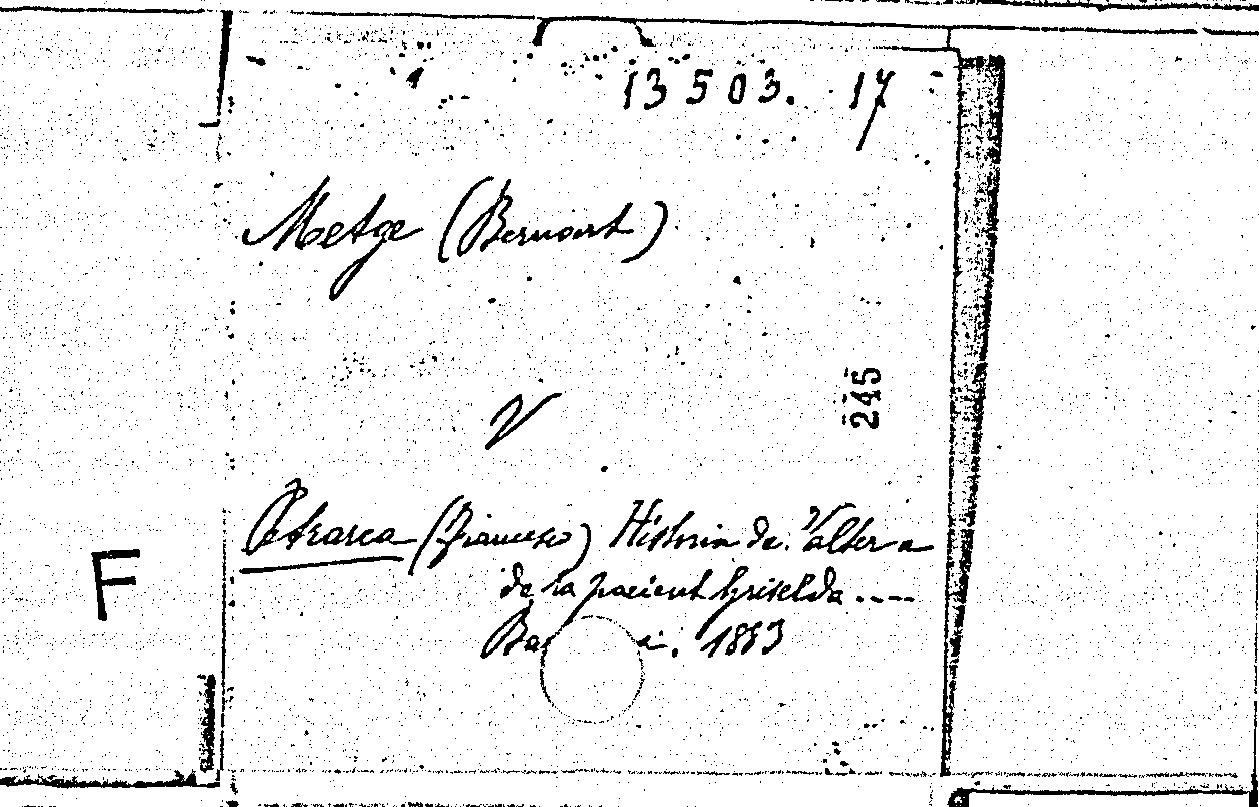 13503. 17
Metge (Bernart)
245
V
Petrarca (Francesco) Historia de Valter e
de la pacient Griselda ....
1883
F